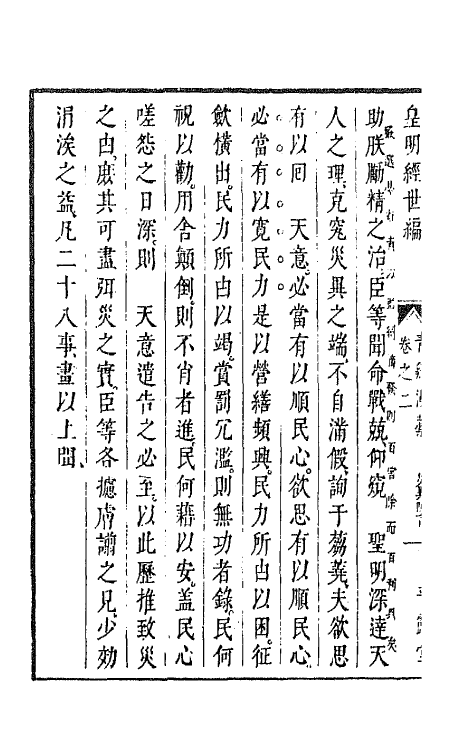 皇明經世編
卷之二
助朕勵精之治臣等聞命戰兢仰窺　聖明深達天
人之理克究災異之端不自滿假詢于蒭蕘夫欲思
有以回　天意必當有以順民心欲思有以順民心
必當有以寬民力是以營繕頻興民力所由以困征
歛橫出民力所由以竭賞罰冗濫則無功者錄民何
祝以勸用舍顛倒則不肖者進民何藉以安蓋民心
嗟怨之日深則　天意遣告之必至以此歷推致災
之由庶其可盡弭災之實臣等各攄膚謭之見少効
涓涘之益凡二十八事畫以上聞